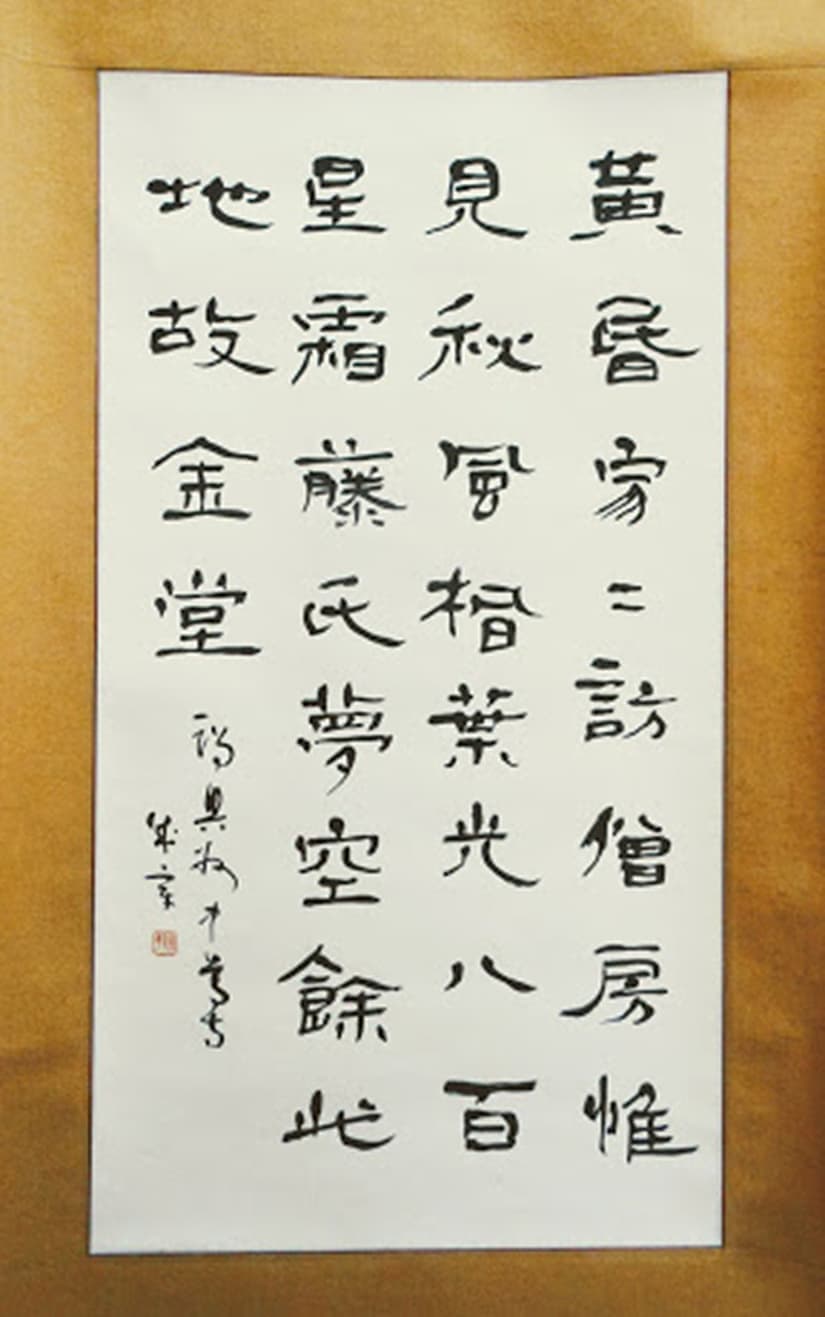 黃昏家〻訪僧房惟
見秋風楷葉光八百
星霜藤氏夢空餘此
地故金堂
謁奥中尊寺